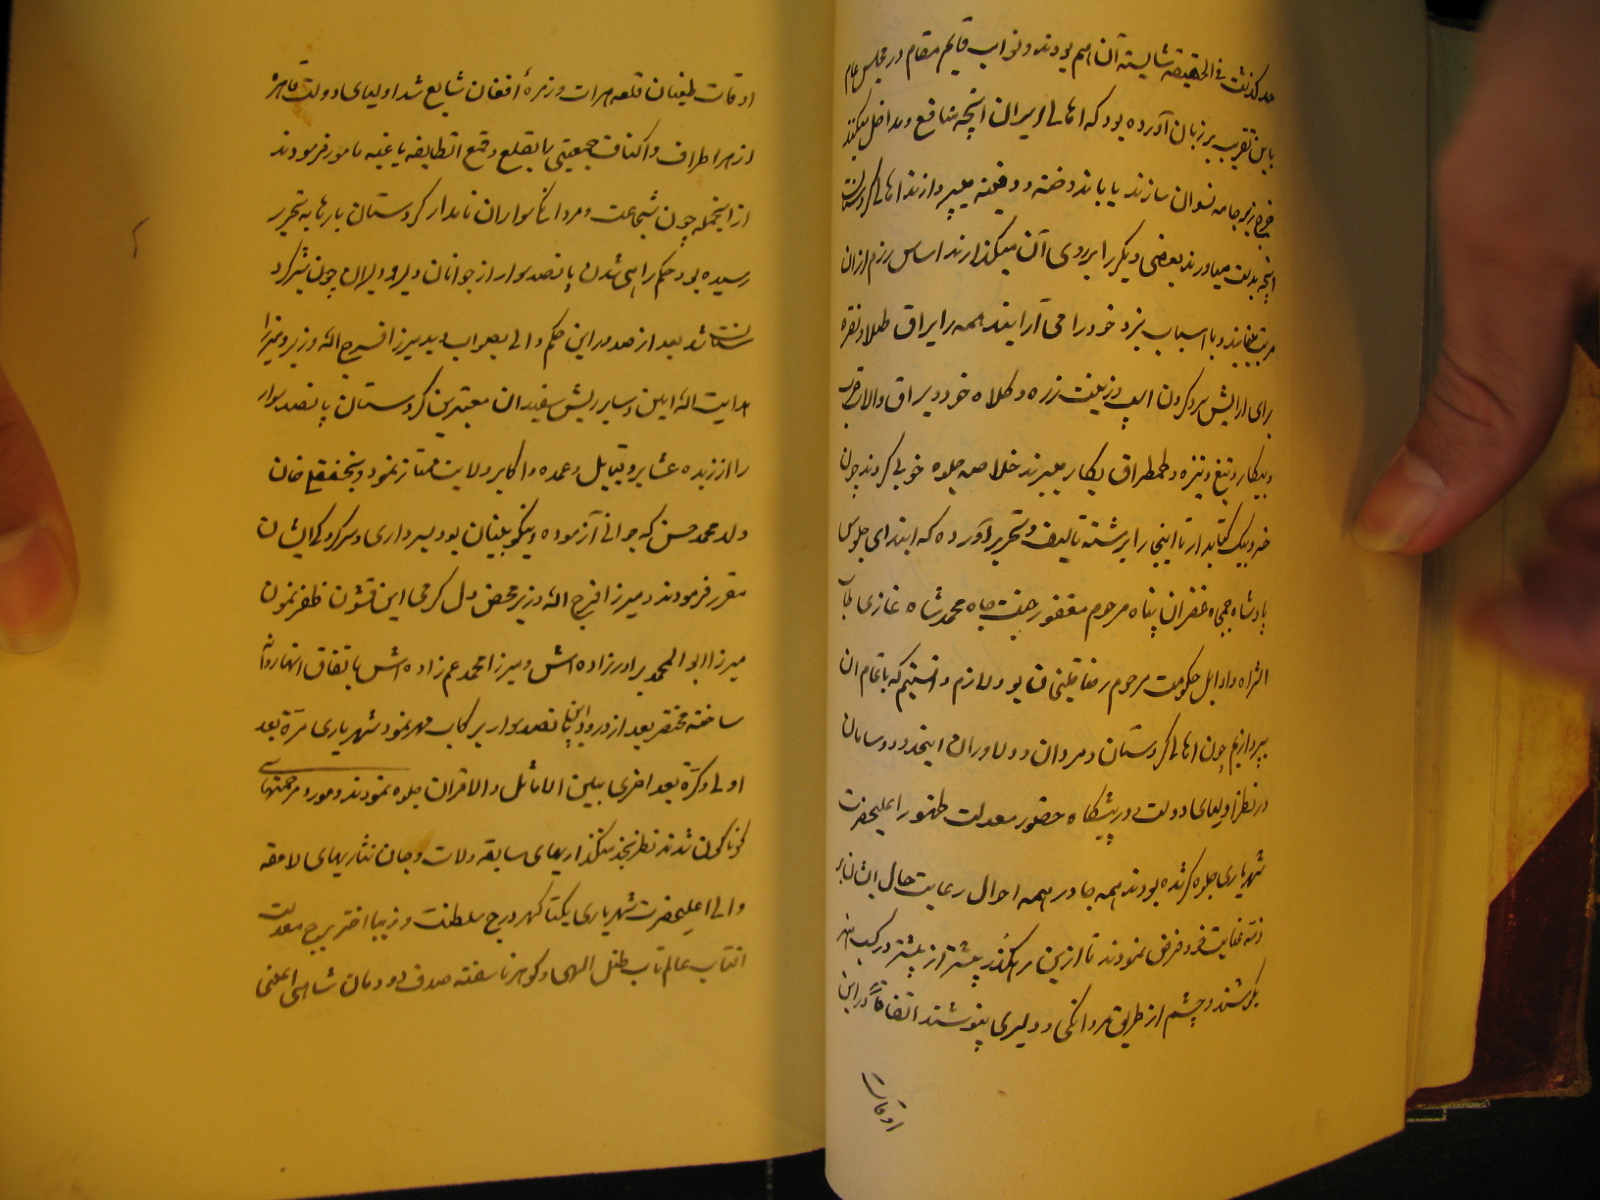 حد گذشت فی الحقیقه شایسته آن هم بودند و نواب قایم مقام در مجلس عام
باین تقریب بر زبان آورده بود که اهالی ایران آنچه منافع و مداخل میکنند
خرج زیر جامه نسوان سازند یا باندوخته و دفینه میپردازند اهالی کردستان
آنچه بدست میاورند بعضی دیگر را بر روی آن میگذارند اساس رزم از آن
مرتب و با اسباب بزد خود را می آرایند همه را یراق طلا و نقره
برای آرایش سر و گردن اسب و زینت زره و کلاه خود و یراق
و پیکار و تیغ و نیزه و طمطراق بکار میبرند خلاصه جلوه خوبی کردند چون
خسرو بیک کتابدار تا اینجا را برشته تالیف و تحریر آورده که ابتدای جلوس
پادشاه جمجاه غفران پناه مرحوم مغفور جنت جاه محمد شاه غازی طاب
الثراه و اوایل حکومت مرحوم رضاقلی خان بود لازم دانستیم که باتمام آن
بپردازیم چون اهالی کردستان و مردان و دلاوران اینحدود و سامان
در نظر اولیای دولت و در پیشگاه حضور معدلت ظهور اعلیحضرت
شهریاری جلوه گر شده بودند همه جا در همه احوال رعایت حال ایشان بر
ذمه عنایت خود فرض نمودند تا ازین رهگذر پیشتر از پیشتر در کسب هنر
بکوشند و چشم از طریق مردانگی و دلیری نپوشند اتفاقاً در این
اوقات
اوقات طغیان قلعه هرات و زمرهٔ افغان شایع شد اولیای دولت قاهره
از هر اطراف و اکناف جمعیتی را بقلع و قمع انطایفه یاغیه مامور فرمودند
از اینجمله چون شجاعت و مردانگی سواران نامدار کردستان بارها به تجربه
رسیده بود حکم راهی شدن پانصد سوار از جوانان دلیر و دلیران چون شیر کرد
ستان شد بعد از صدور این حکم والی بصوابدید میرزا فرج الله وزیر و میرزا
هدایت الله امین و سایر ریش سفیدان معتبرین کردستان پانصد سوار
را از زبده عشایر و قبایل و عمده و اکابر ولایت ممتاز نمود و نجفقلی خان
ولد محمد حسن که جوانی آزموده و نیکو بنیان بود بسرداری و سرکردگی ایشان
مقرر فرمودند و میرزا فرج الله وزیر محض دل گرمی این قشون ظفر نمون
میرزا ابو المحمد برادرزاده اش و میرزا محمد عم زاده اش باتفاق آنها روانه
ساخته مختصر بعد از ورود این پانصد سوار بر کاب مهر نمود شهریاری مرّة بعد
اولی و کرّة بعد اخری بین الاماثل و الاقران جلوه نمودند و مورد مرحمتهای
گوناگون شدند نظر بخدمتگذاریهای سابقه ولات و جان نثاریهای لاحقه
والی اعلیحضرت شهریاری یکتا گهر درج سلطنت و زیبا اختر برج معدلت
آفتاب عالم تاب ظل الهی و گوهر ناسفته صدف دودمان شاهی اعنی